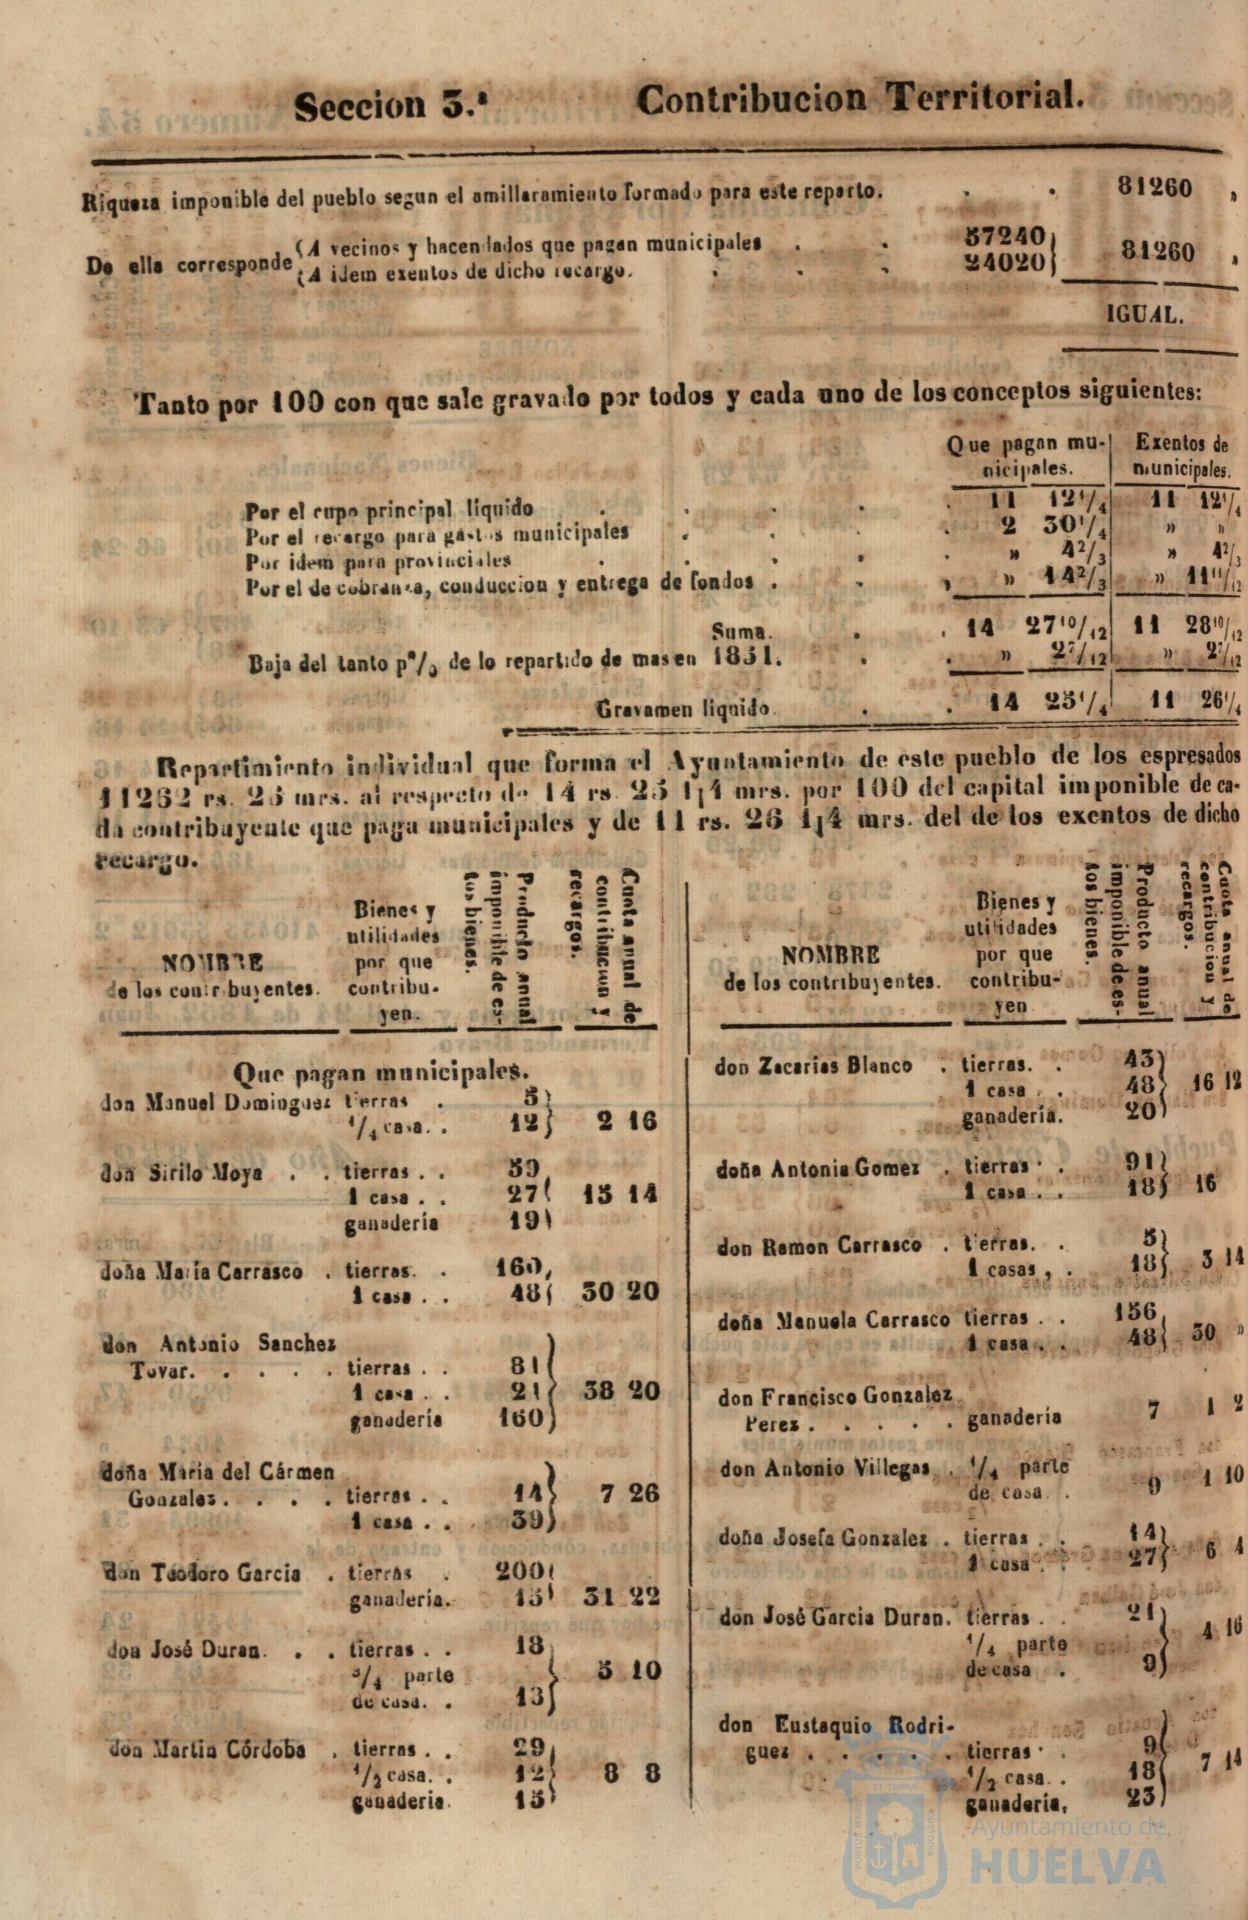 Seccion 3.ª Contribucion Territorial.
Riqueza imponible del pueblo segun el amillaramiento formado para este reparto. . . 81260 ,
De ella corresponde (A vecinos y hacendados que pagan municipales . . 57240) 81260 ,
(A idem exentos de dicho recargo. . . . 24020)
IGUAL.
Tanto por 100 con que sale gravado por todos y cada uno de los conceptos siguientes:
Que pagan mu- Exentos de
nicipales. municipales.
Por el cupo principal líquido . . . . . 11 12 1/4 11 12 1/4
Por el recargo para gastos municipales . . . . 2 30 1/4 » »
Por idem para provinciales . . . . » 4 2/3 » 4 2/3
Por el de cobranza, conduccion y entrega de fondos . . , » 14 2/3 » 11 11/12
Suma. . . 14 27 10/12 11 28 10/12
Baja del tanto p º/0 de lo repartido de mas en 1851. . . » 2 7/12 » 2 7/12
Gravamen líquido. . . 14 25 1/4 11 26 1/4
Repartimiento individual que forma el Ayuntamiento de este pueblo de los espresados
11262 rs. 25 mrs. al respecto de 14 rs. 25 1¡4 mrs. por 100 del capital imponible de ca-
da contribuyente que paga municipales y de 11 rs. 26 1¡4 mrs. del de los exentos de dicho
recargo.
NOMBRE
de los contribuyentes.
Bienes y
utilidades
por que
contribu-
yen.
Producto anual
imponible de es-
tos bienes.
Cuota anual de
contribucion y
recargos.
Que pagan municipales.
don Manuel Dominguez tierras . 5)
1/4 casa. . 12} 2 16
don Sirilo Moya . . tierras . . 59
1 casa . . 27( 15 14
ganadería 19)
doña María Carrasco . tierras. . 160,
1 casa . . 48( 30 20
don Antonio Sanchez
Tovar. . . . . tierras . . 81
1 casa . . 21} 38 20
ganadería 160)
doña María del Cármen
Gonzalez. . . . . tierras . . 14} 7 26
1 casa . . 39)
don Teodoro Garcia . tierras . 200(
ganadería. 15) 31 22
don José Duran. . . tierras . . 18
3/4 parte } 5 10
de casa. . 13)
don Martin Córdoba . tierras . . 29,
1/2 casa. . 12} 8 8
ganaderia. 15)
NOMBRE
de los contribuyentes.
Bienes y
utilidades
por que
contribu-
yen
Producto anual
imponible de es-
tos bienes.
Cuota anual de
contribucion y
recargos.
don Zacarias Blanco . tierras. . 43)
1 casa . . 48} 16 12
ganadería. 20)
doña Antonia Gomez . tierras . . 91)
1 casa . . 18} 16
don Ramon Carrasco . tierras. . 5)
1 casas , . 18} 3 14
doña Manuela Carrasco tierras . . 156,
1 casa . . 48} 30 »
don Francisco Gonzalez
Perez . . . . . ganaderia 7 1 2
don Antonio Villegas . 1/4 parte
de casa . 9 1 10
doña Josefa Gonzalez . tierras . . 14)
1 casa . . 27} 6 4
don José Garcia Duran. tierras . . 21)
1/4 parte } 4 16
de casa . 9)
don Eustaquio Rodri-
guez . . . . . tierras . . 9)
1/2 casa. . 18} 7 14
ganadería, 23)
Ayuntamiento de
HUELVA